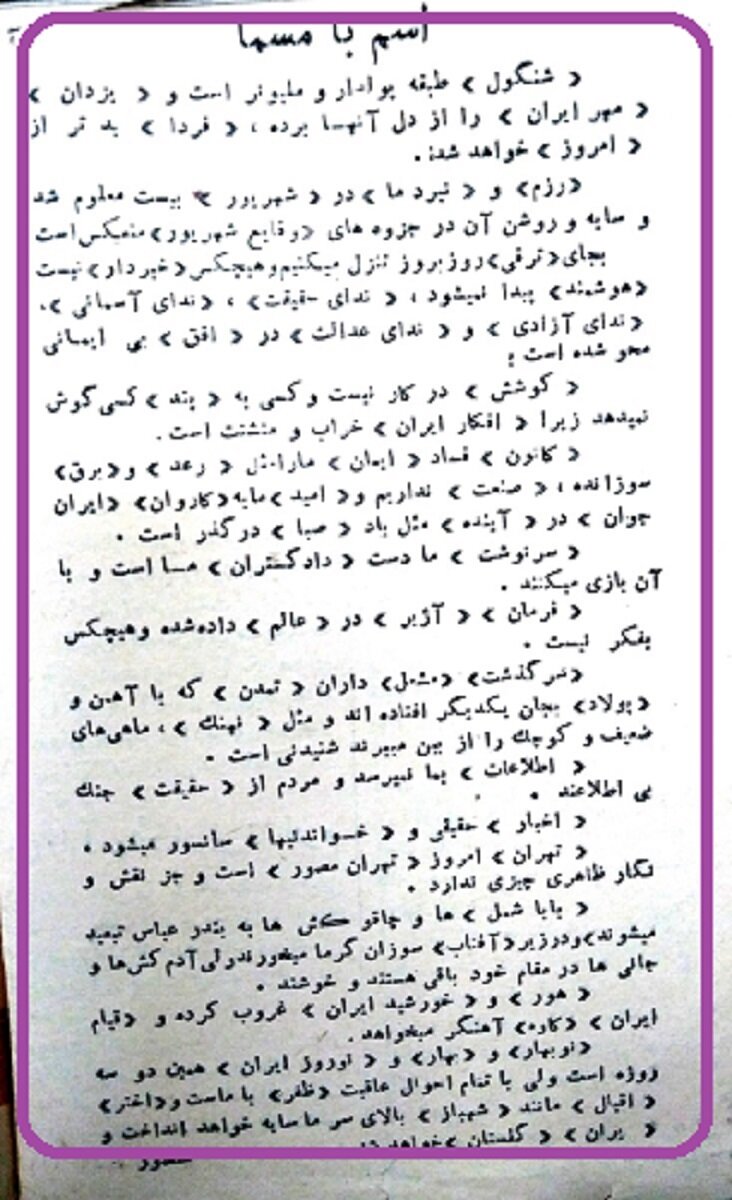 اسم با مسما
« شنگول » طبقه پولدار و ملیونر است و « یزدان »
« مهر ایران » را از دل آنهـا برده ، « فردا » بد تر از
« امروز » خواهد شد .
«رزم» و « نبرد ما » در « شهریور » بیست معلوم شد
و سایه و روشن آن در جزوه های «وقایع شهریور» منعکس است
بجای «ترقی» روز بروز تنزل میکنیم و هیچکس «خبر دار» نیست
«هوشمند» پیدا نمیشود ، « ندای حقیقت» ، «ندای آسمانی »،
«ندای آزادی » و « ندای عدالت » در « افق » بی ایمانی
محو شده است ؛
« کوشش » در کار نیست و کسی به « پند » کسی گوش
نمیدهد زیرا « افکار ایران » خراب و متشتت است .
« کانون » فساد « ایمان » مارا مثل « رعد » و «برق»
سوزانده ، « صنعت » نداریم و « امید » مایه «کاروان» «ایران
جوان » در « آینده » مثل باد « صبا » در گذر است .
« سرنوشت » ما دست « دادگستران » مـا است و با
آن بازی میکنند .
« فرمان » « آژیر » در « عالم » داده شده و هیچکس
بفکر نیست .
«سرگذشت» «مشعل» داران « تمدن » که با آهن و
«پولاد» بجان یکدیگر افتاده اند و مثل « نهنگ » ، ماهی های
ضعیف و کوچک را از بین میبرند شنیدنی است .
« اطلاعات » بما نمیرسد و مردم از « حقیقت » جنگ
بی اطلاعند .
« اخبار » حقیقی و « خـواندنیها » سانسور میشود ،
« تهران » امروز « تهران مصور » است و جز نقش و
نگار ظاهری چیزی ندارد .
« بابا شمل » ها و چاقو کش ها به بندر عباس تبعید
میشوند و در زیر «آفتاب» سوزان گرما میخورند ولی آدم کش ها و
جانی ها در مقام خود باقی هستند و خوشند .
« هور » و « خورشید ایران » غروب کرده و «قیام
ایران » «کاوه» آهنگر میخواهد .
«نوبهار» و «بهار» و « نوروز ایران » همین دو سه
روزه است ولی با تمام احوال عاقبت «ظفر» با ماست و «اختر»
« اقبال » مانند « شهباز » بالای سر ما سایه خواهد انداخت و
« ایران » « گلستان » خواهد